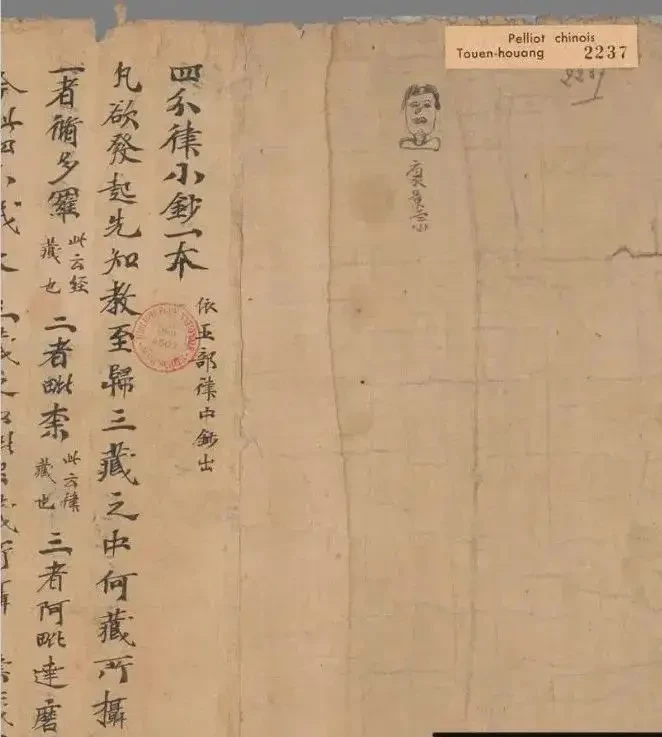 Pelliot chinois
Touen-houang 2237
2237
四分律小鈔一本 依五部律中鈔出
凡欲發起先知教至歸三藏之中何藏所攝
一者脩多羅 此云經藏也 二者毗柰 此云律藏也 三者阿毗達磨